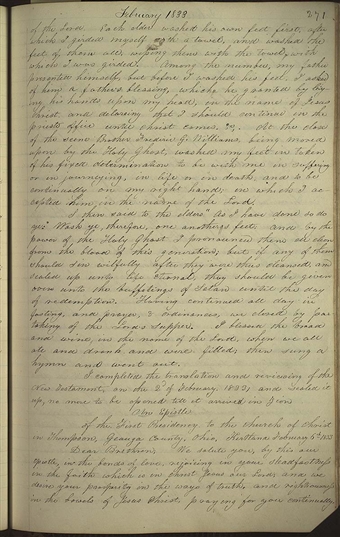 February 1833 271
of the Lord. Each elder washed his own feet first, after
which I girded myself with a towel, and washed the
feet of them all, wiping them with the towel, with
which I was girded. Among the number, my father
presented himself, but before I washed his feet, I asked
of him a father's blessing, which he granted by lay-
ing his hands upon my head, in the name of Jesus
Christ, and declaring that I should continue in the
priests office until Christ comes. At the close
of the scene Brother Fredric G. Williams being moved
upon by the Holy Ghost, washed my feet in token
of his fixed determination to be with me in suffering
or in journeying, in life or in death, and to be
continually on my right hand; in which I ac-
cepted him in the name of the Lord.
I then said to the elders: As I have done so do
ye: Wash ye, therefore, one another's feet, and by the
power of the Holy Ghost I pronounced them all clean
from the blood of this generation; but if any of them
should sin wilfully after they were thus cleansed and
sealed up unto life eternal, they should be given
over unto the buffetings of Satan until the day
of redemption. Having continued all day in
fasting, and prayer, & ordinances, we closed by par
taking of the Lord's Supper. I blessed the bread
and wine, in the name of the Lord, when we all
ate and drank and were filled, then sung a
hymn and went out.
I completed the translation and reviewing of the
New Testament, on the 2d of February, 1833, and sealed it
up, no more to be opened till it arrived in Zion
An Epistle
of the First Presidency to the church of Christ
in Thompson, Geauga County, Ohio, Kirtland February 6th 1833
Dear Brethren: We salute you, by this our
epistle, in the bonds of love, rejoicing in your steadfastness
in the faith which is in Christ Jesus our Lord; and we
desire your prosperity in the ways of truth and righteousness
in the bowels of Jesus Christ, praying for you continually,